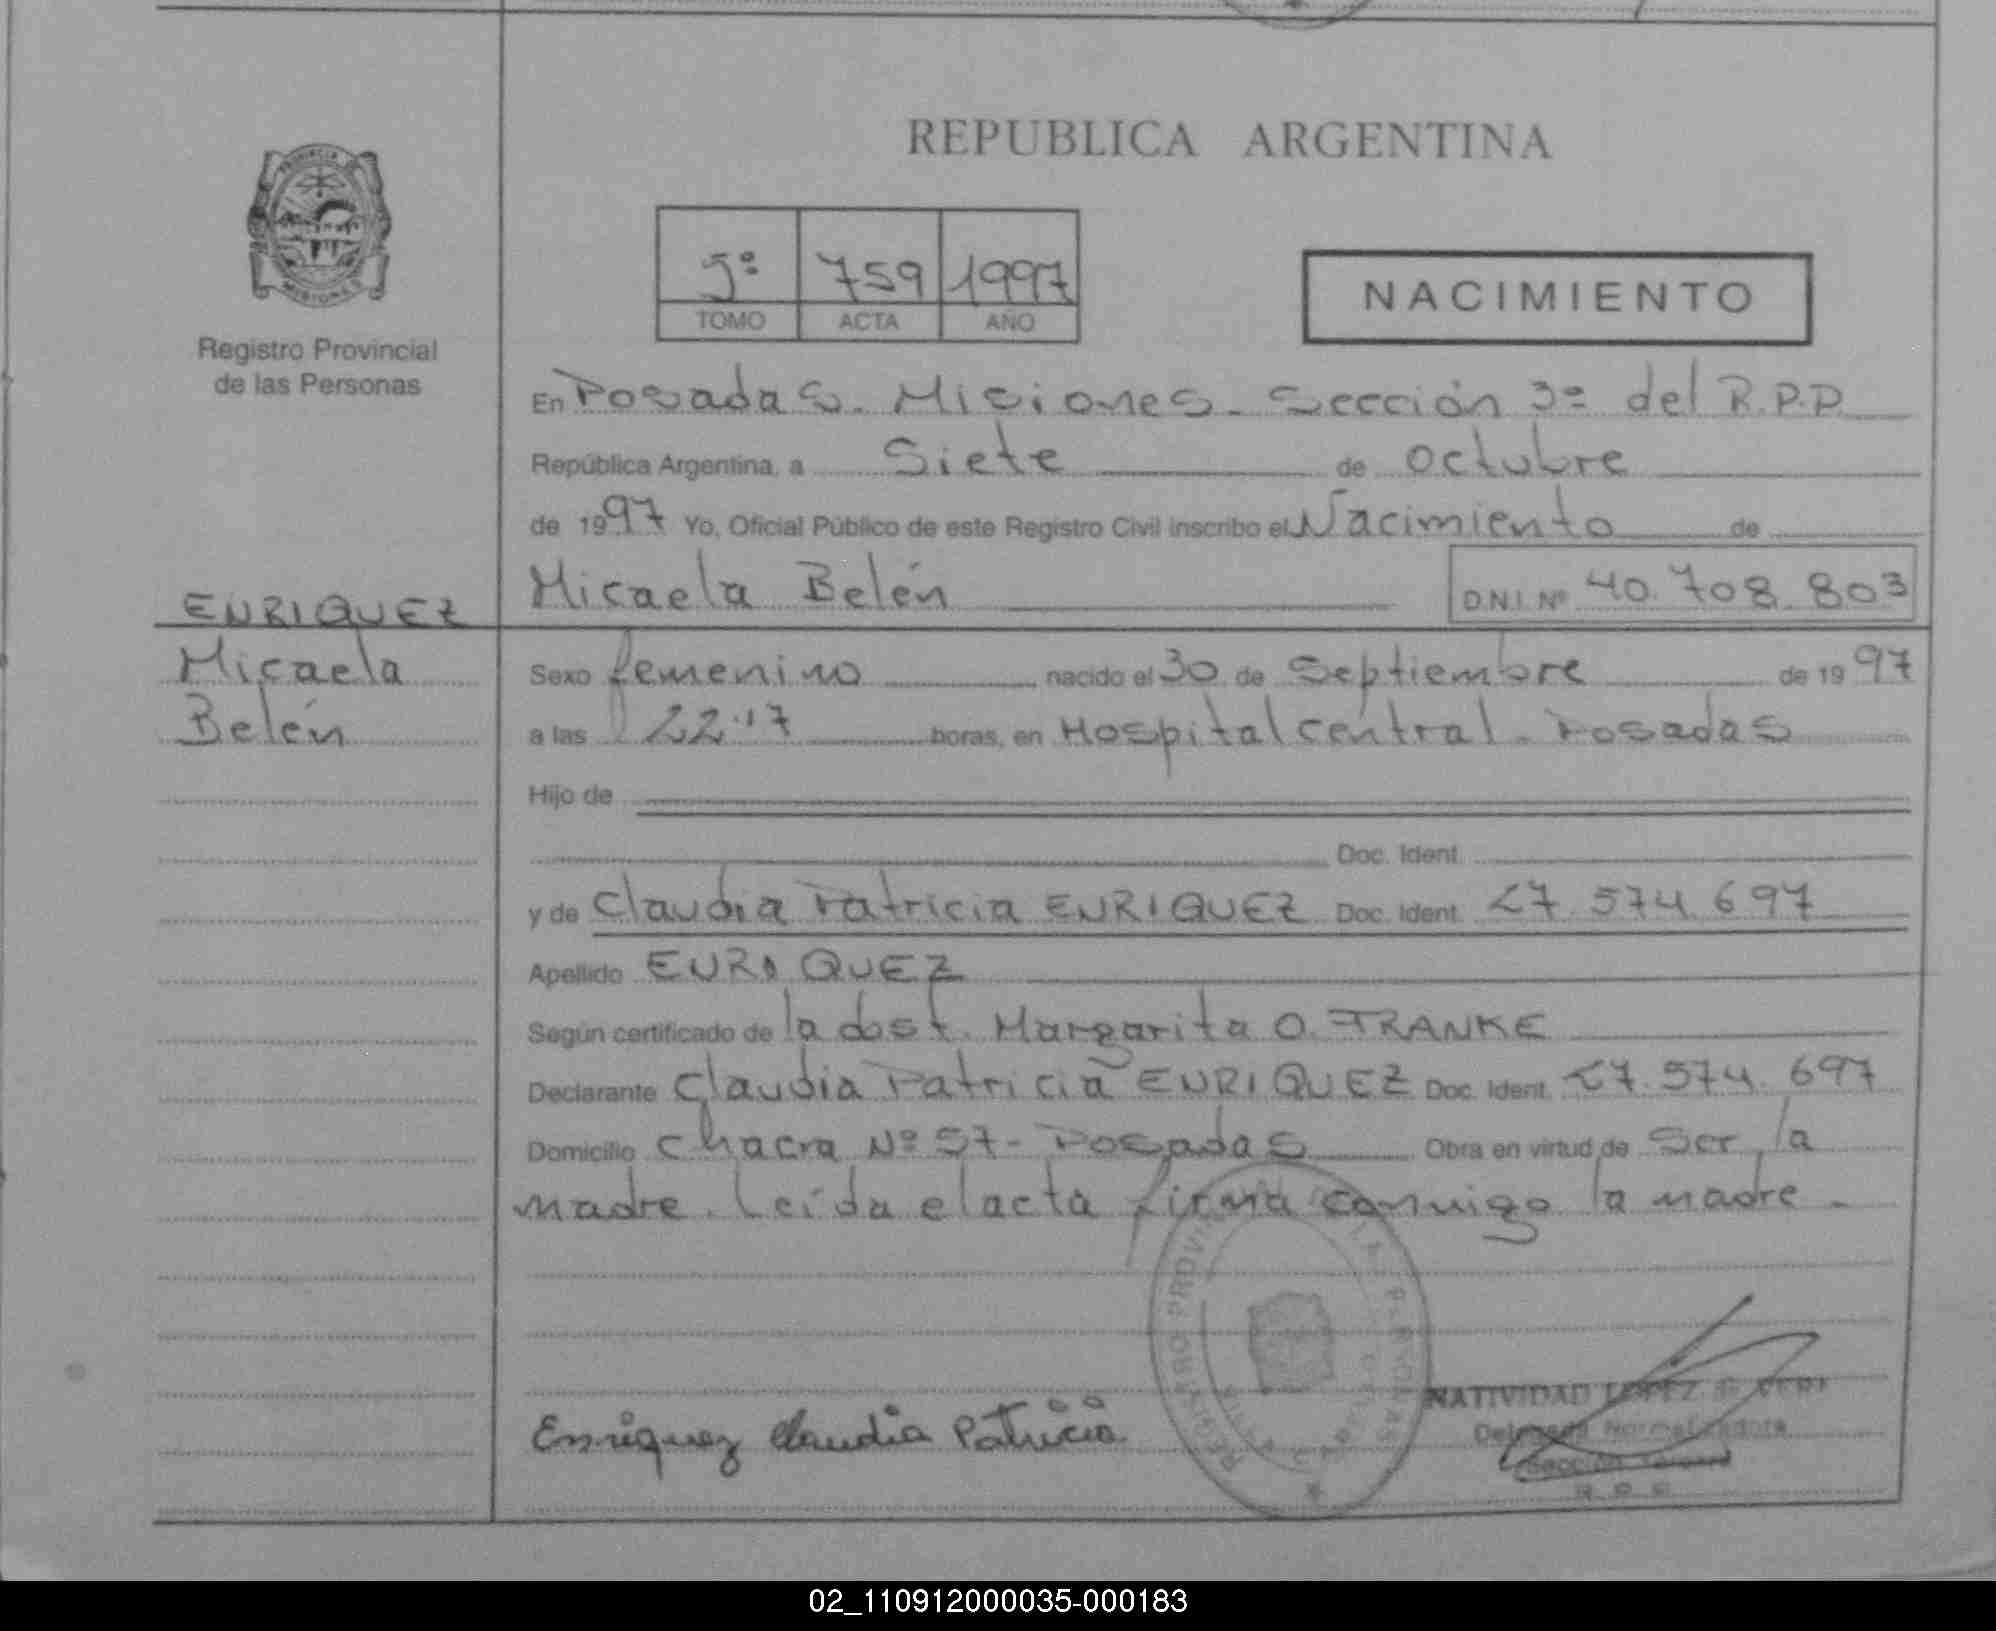 REPUBLICA ARGENTINA
PROVINCIA
MISIONES
Registro Provincial
de las Personas
5º 759 1997
TOMO ACTA AÑO
NACIMIENTO
En Posadas. Misiones. Sección 3ª del R.P.P.
República Argentina, a Siete de octubre
de 1997 Yo, Oficial Público de este Registro Civil inscribo el Nacimiento de
Micaela Belén D.N.I. Nº 40.708.803
ENRIQUEZ
Micaela
Belén
Sexo femenino nacido el 30 de Septiembre de 1997
a las 22:17 horas, en Hospital central. Posadas
Hijo de
Doc. Ident.
y de Claudia Patricia ENRIQUEZ Doc. Ident. 27.574.697
Apellido ENRIQUEZ
Según certificado de la obst. Margarita O. FRANKE
Declarante Claudia Patricia ENRIQUEZ Doc. Ident. 27.574.697
Domicilio Chacra Nº 57- Posadas Obra en virtud de Ser la
madre. Leída el acta firma conmigo la madre.
REGISTRO PERSONAS
Enriquez Claudia Patricia
NATIVIDAD LOPEZ
Delegada Normalizadora
Sección
02_110912000035-000183